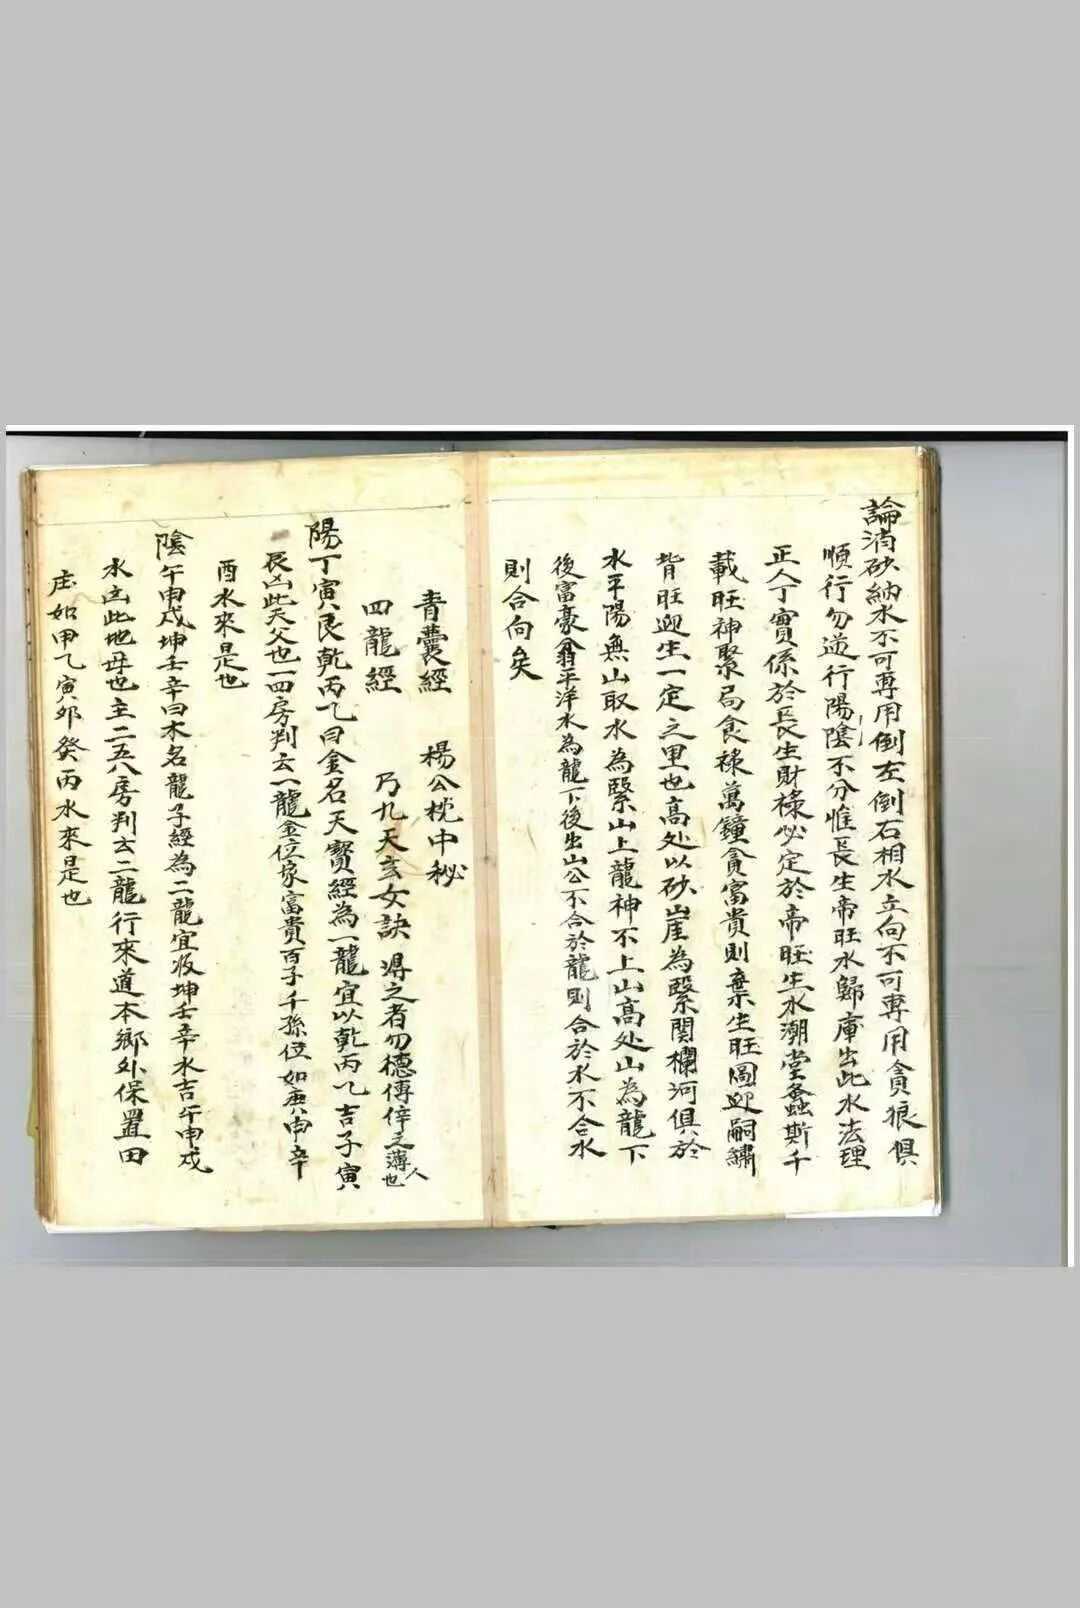 論消砂納水不可專用倒左倒右相水立向不可專用貪狼俱
順行勿逆行陽陰不分惟長生帝旺水歸庫出此水法理
正人丁實係於長生財祿必定於帝旺生水潮堂螽斯千
載旺神聚局食祿萬鐘貪富貴則棄生旺圖迎嗣繡
背旺迎生一定之里也高处以砂崖為緊関欄河俱於
水平陽無山取水為緊山上龍神不上山高处山為龍下
後富豪翁平洋水為龍下後出山公不合於龍則合於水不合水
則合向矣
青囊經 楊公枕中秘
四龍經 乃九天玄女訣 淂之者勿德傳侓之薄人也
陽丁寅艮乾丙乙曰金名天寳經為一龍宜以乾丙乙吉子寅
辰凶此天父也一四房判云一龍金位家富貴百子千孫位如庚申辛
酉水來是也
陰午申戍坤壬辛曰木名龍子經為二龍宜收坤壬辛水吉午申戍
水凶此地母也主二五八房判玄二龍行來道本鄉外保置田
庄如甲乙寅夘癸丙水來是也